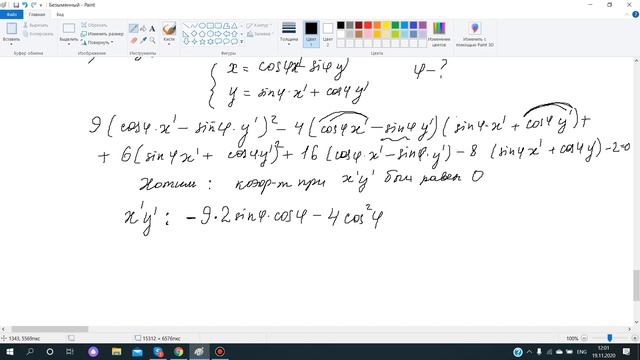 Безымянный - Paint
Файл Главная Вид
Вставить
Обрезать
Изменить размер
Повернуть
Выделить
Кисти
Контур
Заливка
Толщина
Цвет 1
Цвет 2
Изменение цветов
Изменить с помощью Paint 3D
Буфер обмена Изображение Инструменты Фигуры Цвета
x = cosφx' - sinφy' φ - ?
y = sinφ·x' + cosφy'
9(cosφ·x' - sinφ·y')² - 4(cosφx' - sinφy')(sinφ·x' + cosφy') +
+ 6(sinφx' + cosφy')² + 16(cosφ·x' - sinφ·y') - 8(sinφx' + cosφy') - 2 = 0
Хотим: коэф-т при x'y' был равен 0
x'y': - 9·2sinφ·cosφ - 4cos²φ
1343, 5569пкс 15312 × 6576пкс 100%
ENG 12:01
19.11.2020